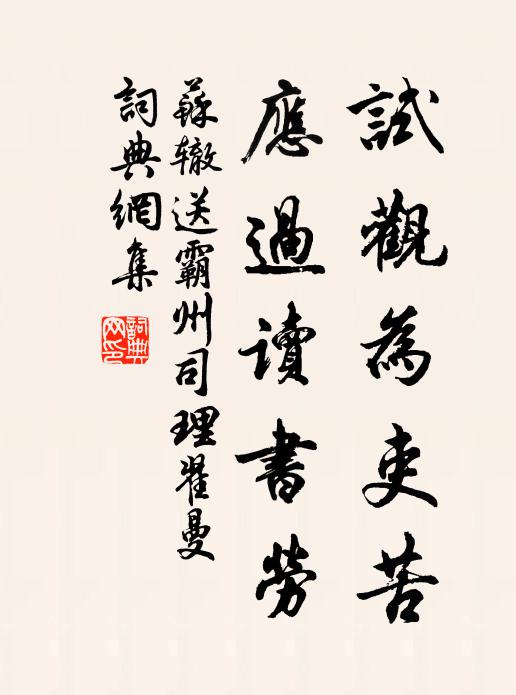 試觀為吏苦
應過讀書勞
蘇辙送霸州司理翟曼
詞典網集
詞典网印